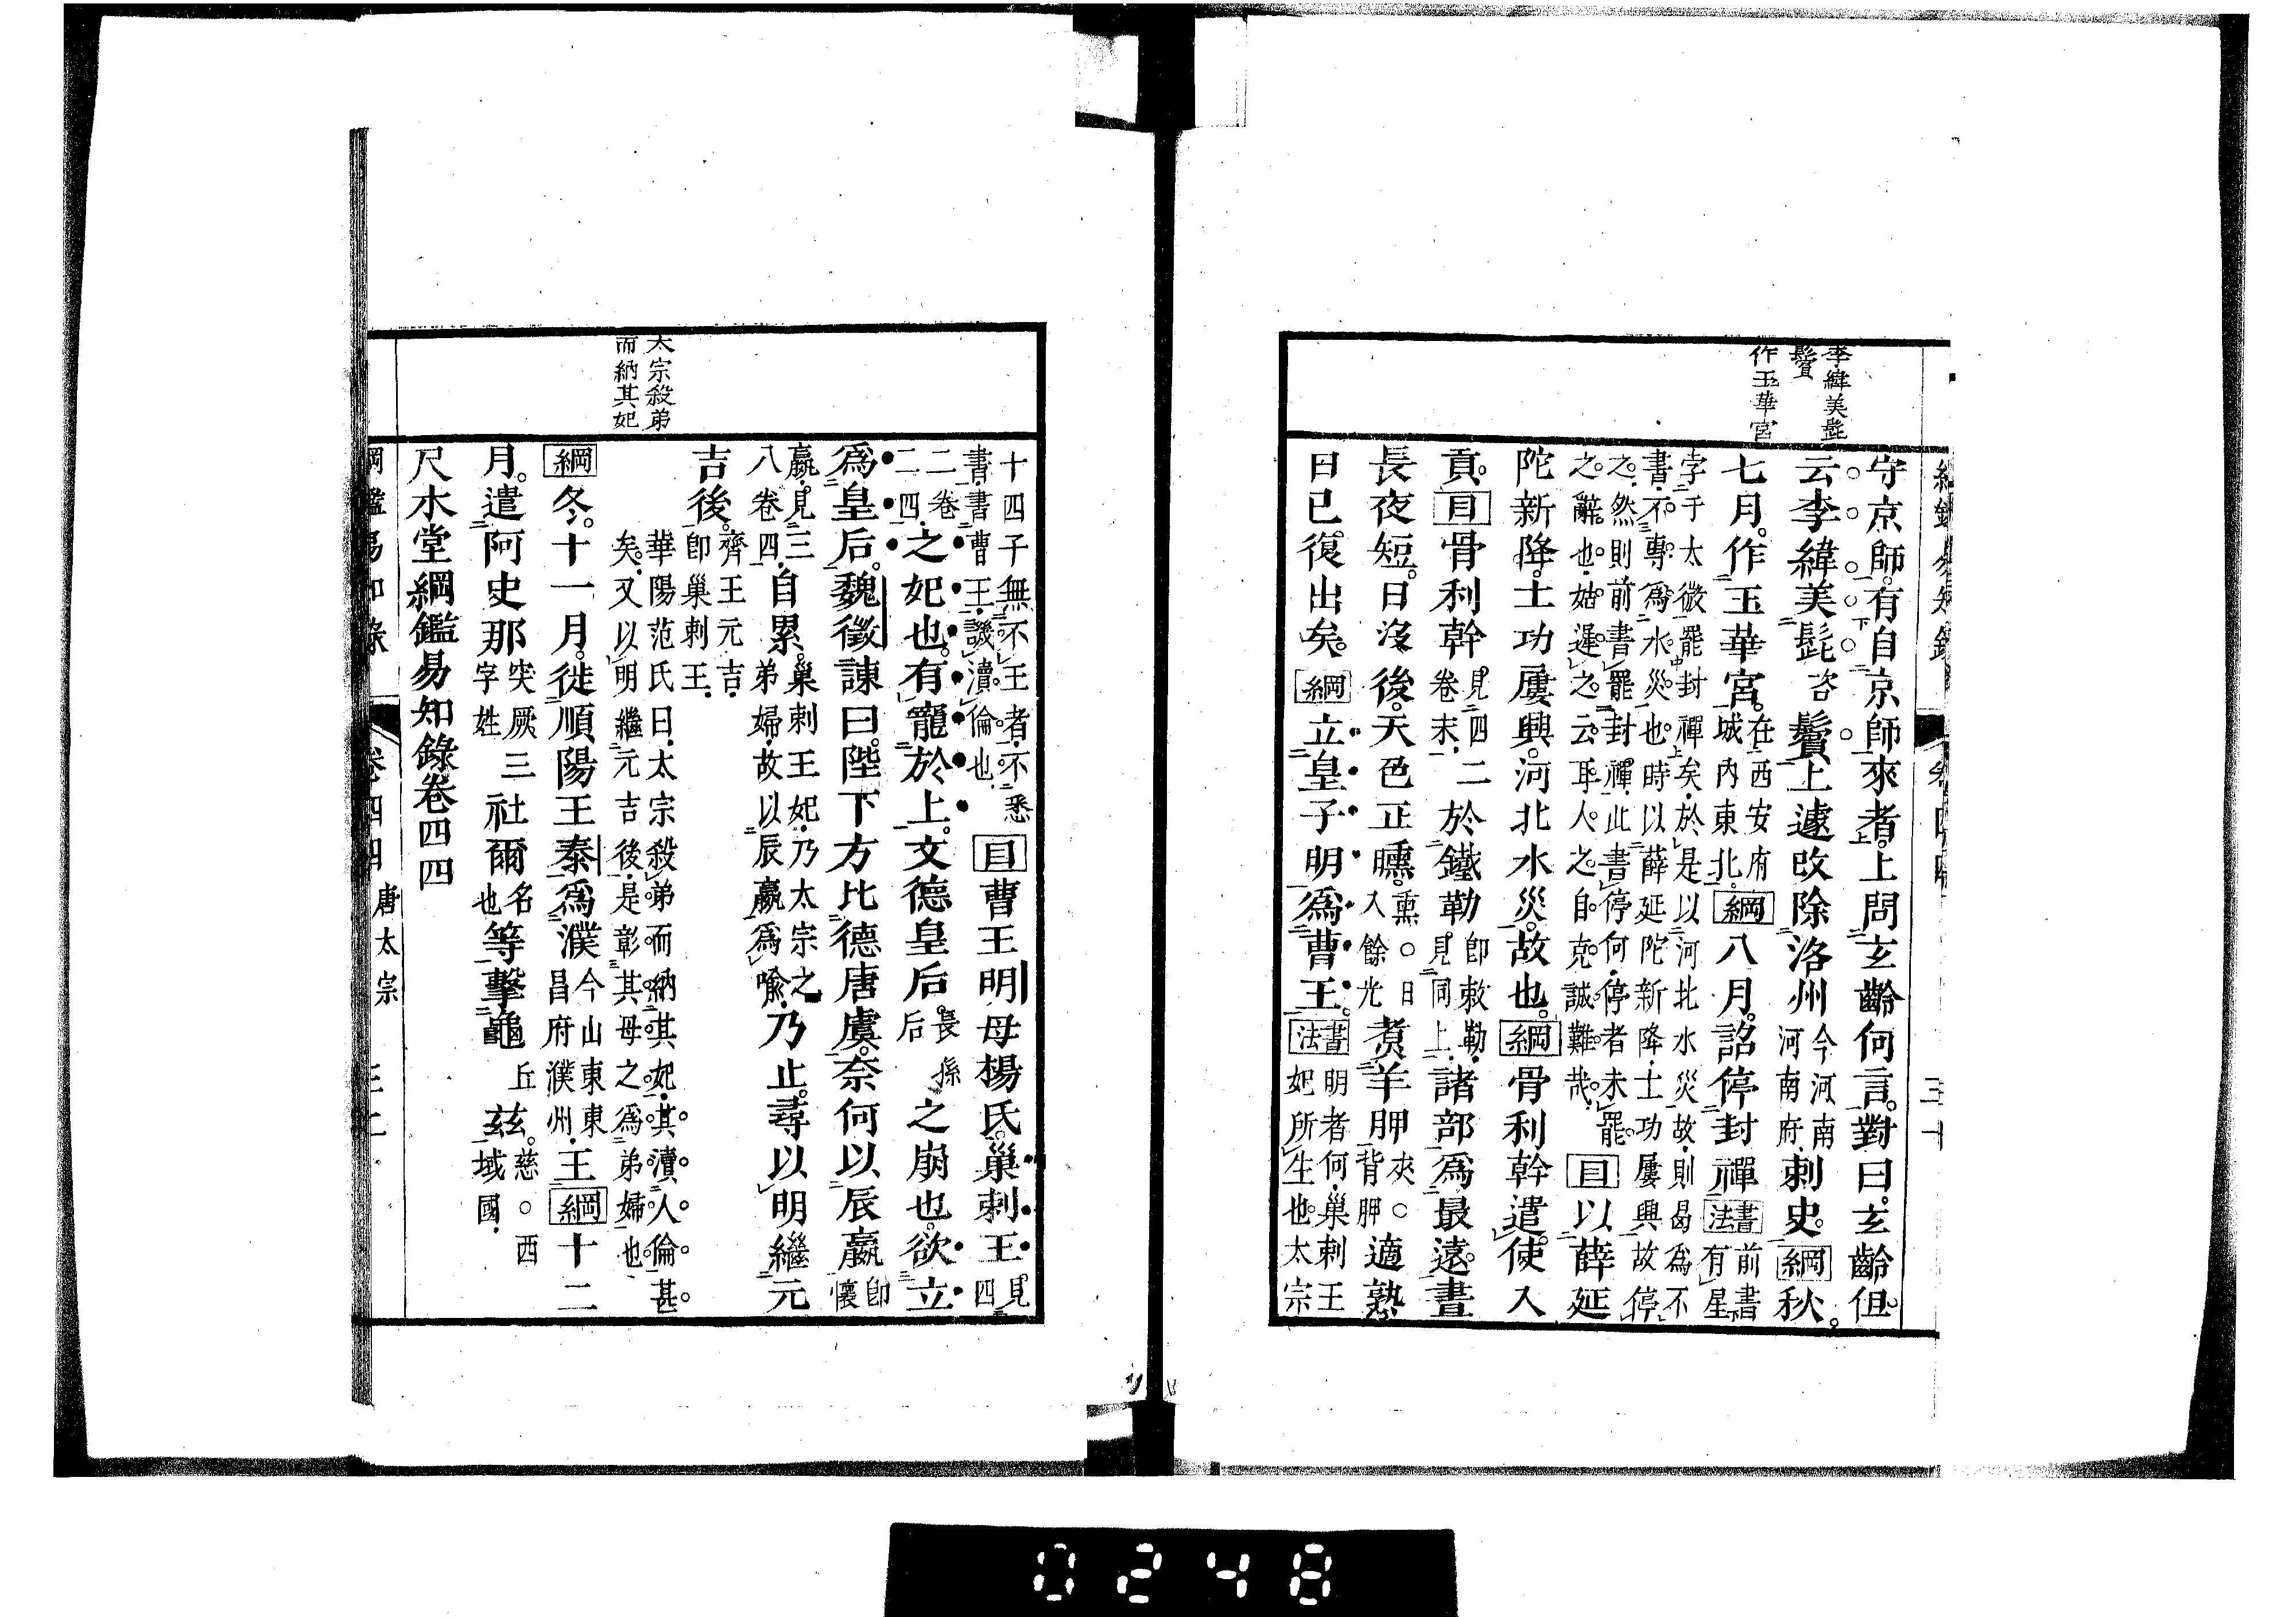 李緯美髭
鬢
作玉華宮
守京師。有自京師來者。上問玄齡何言。對曰。玄齡但
云李緯美髭咨鬢。上遽改除洛州今河南河南府刺史。綱秋。
七月。作玉華宮。在西安府城內東北。綱八月。詔停封禪書法前書有星
孛于太微罷封禪矣於是以河北水災故則曷為不
書不專為水災也時以薛延陀新降土功屢興故停
之然則前書罷封禪此書停何停者未罷
之辭也姑遲之云耳人之自克誠難哉目以薛延
陀新降。土功屢興。河北水災。故也。綱骨利幹遣使入
貢。目骨利幹見四二卷末於鐵勒即敕勒見同上諸部為最遠。晝
長夜短。日沒後。天色正曛。熏○日入餘光煑羊胛夾○背胛適熟。
日已復出矣。綱立皇子明為曹王。書法明者何巢剌王
妃所生也太宗
十四子無不王者不悉
書書曹王譏瀆倫也目曹王明母楊氏。巢剌王見四
二卷二四之妃也。有寵於上。文德皇后長孫后之崩也。欲立
為皇后。魏徵諫曰。陛下方比德唐虞。奈何以辰嬴即懷
嬴見三八卷四自累。巢剌王妃乃太宗之弟婦故以辰嬴為喻乃止。尋以明繼元
吉後。齊王元吉即巢剌王
華陽范氏曰太宗殺弟而納其妃其瀆人倫甚
矣又以明繼元吉後是彰其母之為弟婦也
綱冬。十一月。徙順陽王泰為濮今山東東昌府濮州王綱十二
月。遣阿史那突厥字姓三社爾名也等擊龜丘茲。慈○西域國
尺木堂綱鑑易知錄卷四四
太宗殺弟
而納其妃
綱鑑易知錄 卷四四 唐太宗
0248